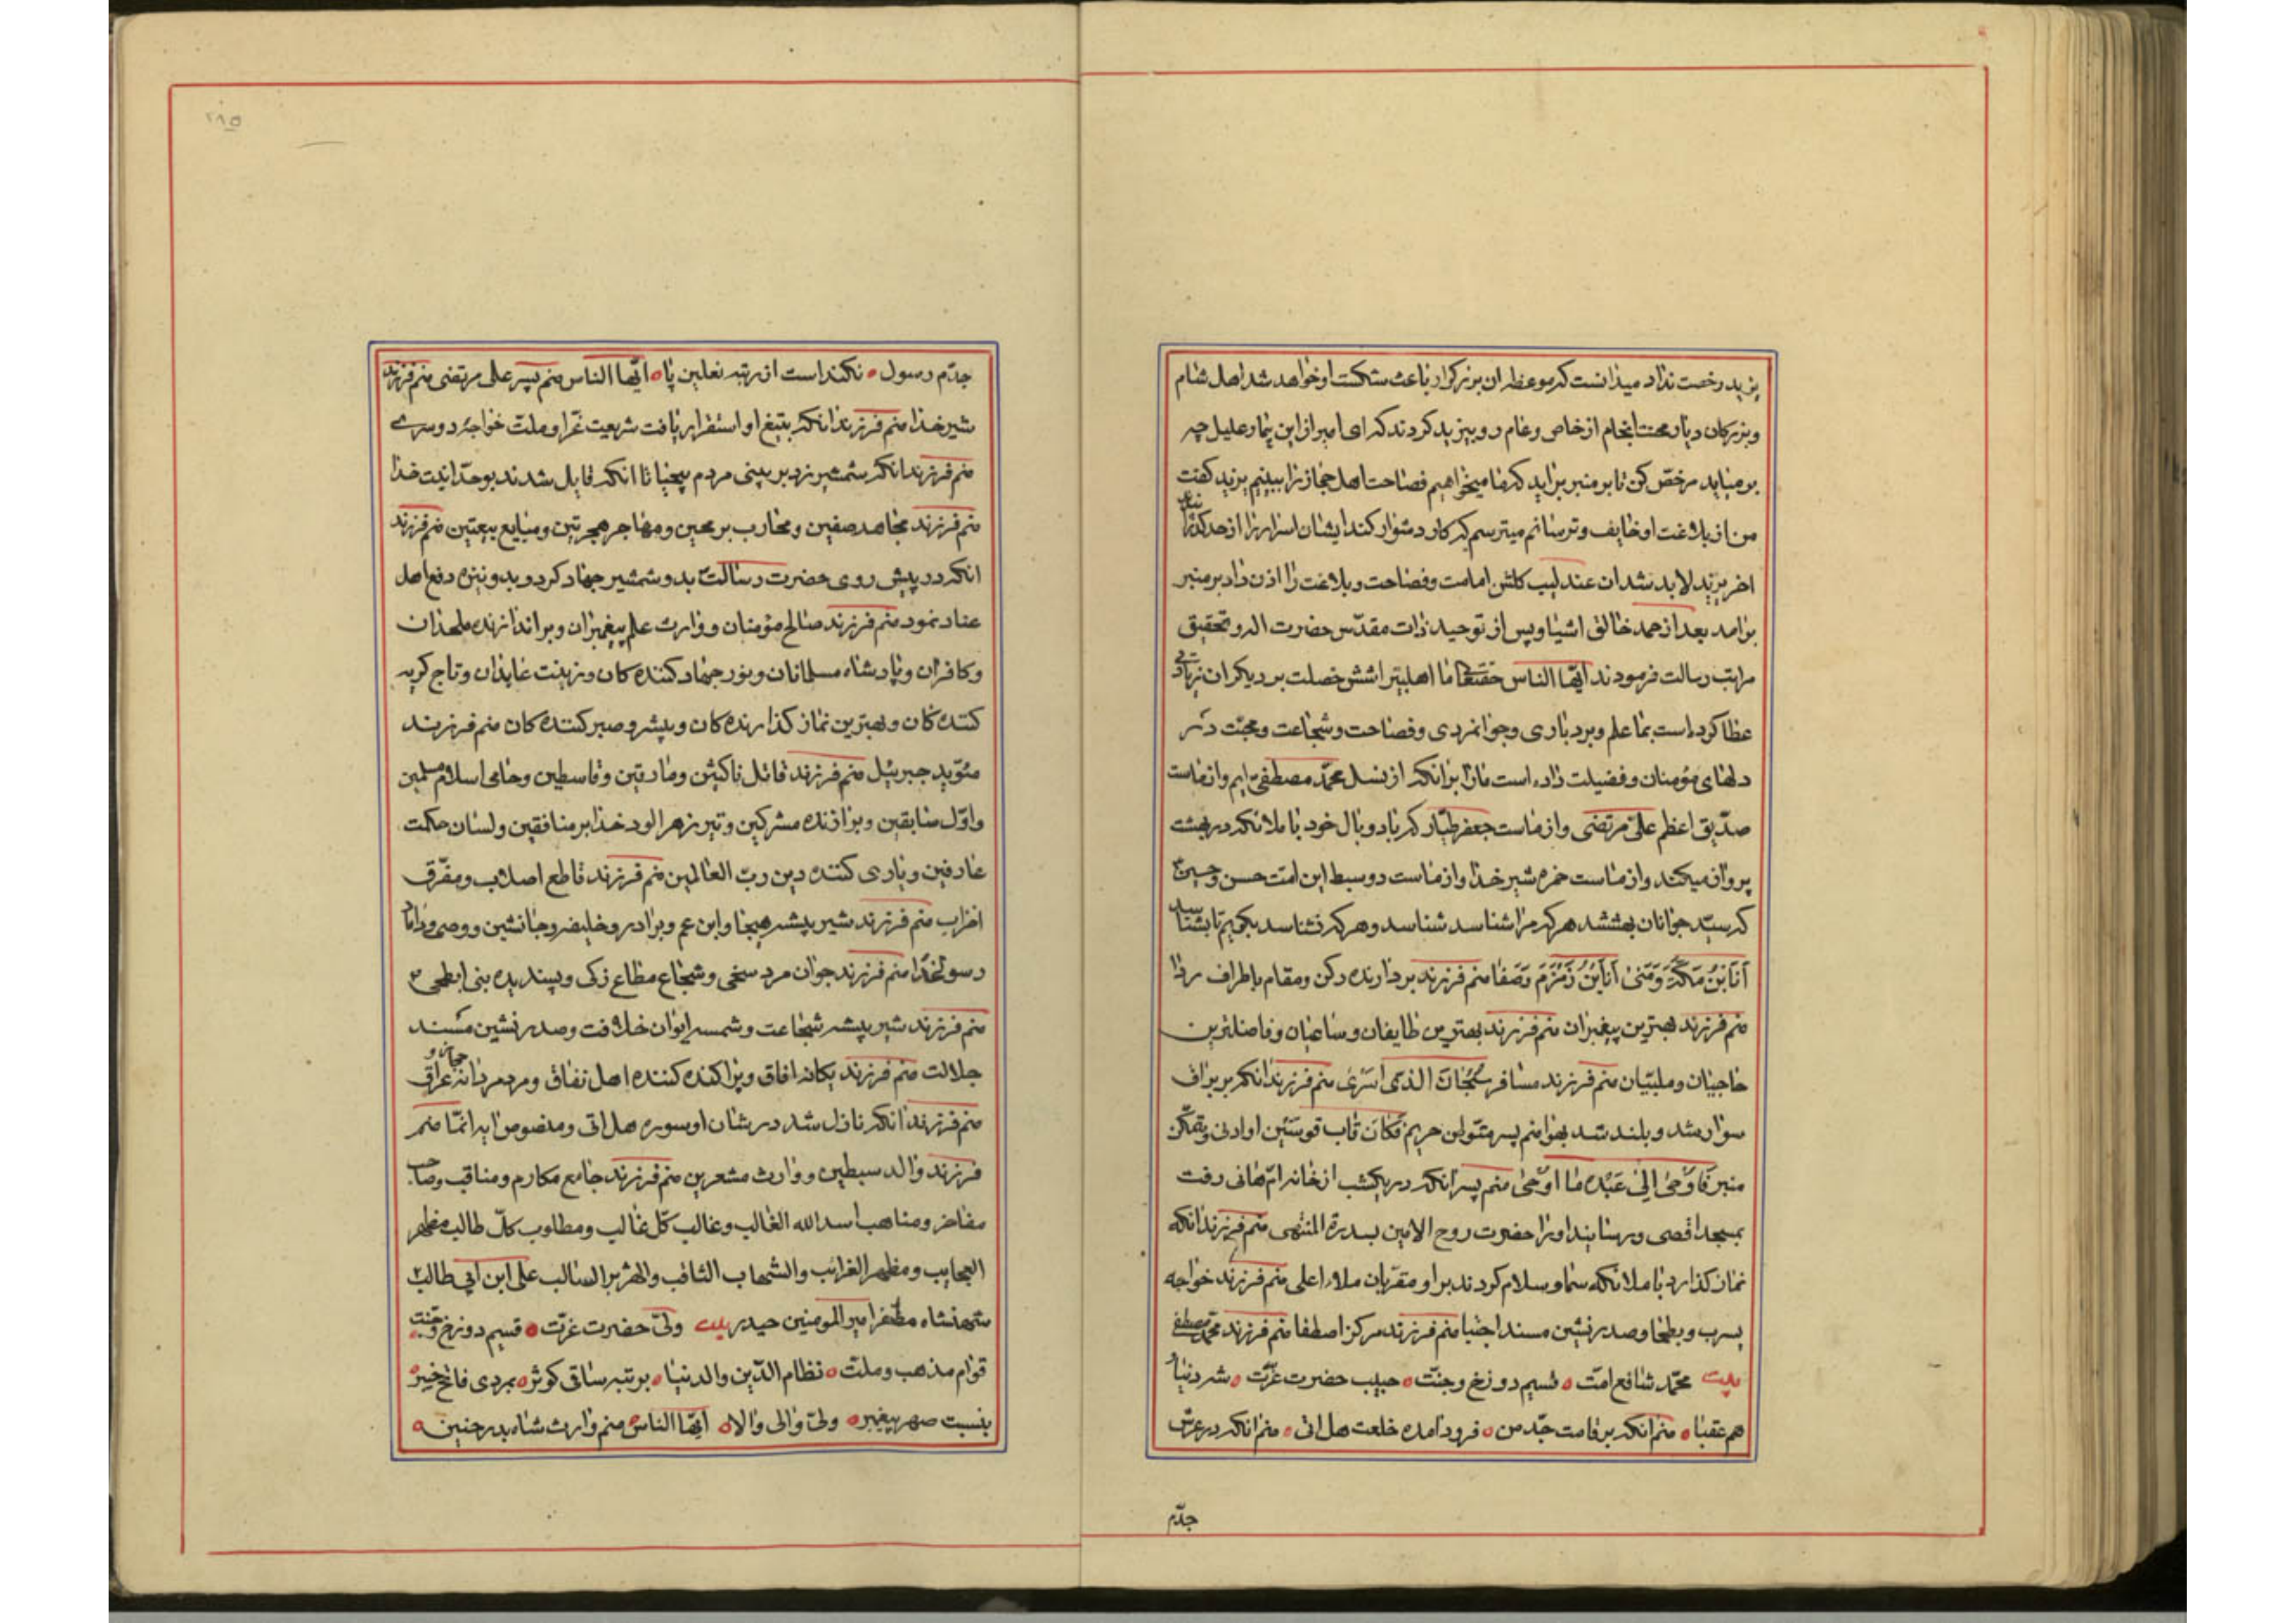 یزید رخصت نداد میدانست که موعظه ان بزرکوار باعث شکست او خواهد شد اهل شام
و بزرکان دیار محنت انجام از خاص و عام رو بیزید کردند که ای امیر از این بیمار علیل چه
بر میاید مرخص کن تا بر منبر براید که ما میخواهیم فصاحت اهل حجاز را ببینیم یزید کفت
من از بلاغت او خایف و ترسانم میترسم که کار دشوار کند ایشان اسرار را از حد
اخر یزید لابد شد ان عندلیب کلشن امامت و فصاحت و بلاغت را اذن داد بر منبر
برامد بعد از حمد خالق اشیا و پس از توحید ذات مقدّس حضرت اله و تحقیق
مراتب رسالت فرمودند ایّها الناس حقتعالی ما اهلبیترا شش خصلت بر دیکران زیادتی
عطا کرده است بما علم و بردباری و جوانمردی و فصاحت و شجاعت و محبّت در
دلهای مؤمنان و فضیلت داده است مارا برانکه از نسل محمّد مصطفی ایم و از ماست
صدّیق اعظم علیّ مرتضی و از ماست جعفر طیّار که باد و بال خود با ملائکه در بهشت
پرواز میکند و از ماست حمزه شیر خدا و از ماست دو سبط این امّت حسن و حسین
که سیّد جوانان بهشتند هرکه مرا شناسد شناسد و هرکه نشناسد بکویم تا بشناسد
اَنَا بْنُ مَکَّةَ وَ مَنیٰ اَنَا بْنُ زَمْزَمَ وَ صَفا منم فرزند بردارنده رکن و مقام باطراف ردا
منم فرزند بهترین پیغمبران منم فرزند بهترین طایفان و ساعیان و فاضلترین
حاجیان و ملبّیان منم فرزند مسافر سُبْحٰانَ الّذی اَسْریٰ منم فرزند انکه بر براق
سوار شد و بلند شد بهوا منم پسر متولی حریم فَکٰانَ قٰابَ قَوسَیْنِ اَو ادنی و متمکّن
منبر فَاَوْحیٰ اِلیٰ عَبْدِه مٰا اَوْحیٰ منم پسر انکه در یکشب از خانه امّ هانی رفت
بمسجد اقصی و رسانید او را حضرت روح الامین بسدرة المنتهی منم فرزند انکه
نماز کذارد با ملائکه سما و سلام کردند بر او مقرّبان ملاء اعلی منم فرزند خواجه
یثرب و بطحا و صدر نشین مسند اجتبا منم فرزند مرکز اصطفا منم فرزند محمّد مصطفی
بیت محمّد شافع امّت ه قسیم دوزخ و جنّت ه حبیب حضرت عزّت ه شه دنیا و
هم عقبا ه منم انکه بر قامت جدّ من ه فرود امده خلعت هل اتی ه منم انکه در عرش
جدّم
جدّم رسول ه نکنداست از رتبه نعلین پا ه ایّها الناس منم پسر علی مرتضی منم فرزند
شیر خدا منم فرزند انکه بتیغ او استقرار یافت شریعت غرّا و ملّت خواجه دوسرے
منم فرزند انکه شمشیر زد بر بینی مردم بیحیا تا انکه قایل شدند بوحدانیت خدا
منم فرزند مجاهد صفین و محارب برمحین و مهاجر هجرتین و مبایع بیعتین منم فرزند
انکه در پیش روی حضرت رسالت بدو شمشیر جهاد کرد و بدو نیزه دفع اهل
عناد نمود منم فرزند صالح مؤمنان و وارث علم پیغمبران و براندازنده ملحدان
و کافران و پادشاه مسلمانان و نور جهاد کننده کان و زینت عابدان و تاج کریه
کننده کان و بهترین نماز کذارنده کان و پیشرو صبر کننده کان منم فرزند
مؤیّد جبرئیل منم فرزند قاتل ناکثین و مارقین و قاسطین و حامی اسلام مسلمین
و اوّل سابقین و براندازنده مشرکین و تیر زهرالود خدا بر منافقین و لسان حکمت
عارفین و یاری کننده دین ربّ العالمین منم فرزند قاطع اصلاب و مفرّق
احزاب منم فرزند شیر بیشه هیجا و ابن عم و برادر و خلیفه و جانشین و وصی و داماد
رسولخدا منم فرزند جوان مرد سخی و شجاع مطاع زکی و پسندیده بنی ابطحی
منم فرزند شیر بیشه شجاعت و شمسه ایوان خلافت و صدر نشین مسند
جلالت منم فرزند یکانه افاق و پراکنده کننده اهل نفاق و مرد مردانه حجاز و عراق
منم فرزند انکه نازل شد در شان او سوره هل اتی و منصوص ایه انّما منم
فرزند والد سبطین و وارث مشعرین منم فرزند جامع مکارم و مناقب و صاحب
مفاخر و مناهب اسد الله الغالب و غالب کلّ غالب و مطلوب کلّ طالب مظهر
العجایب و مظهر الغرائب و الشهاب الثاقب و الهژبر السالب علی ابن ابی طالب
شهنشاه مظفر امیر المومنین حیدر بیت ولیّ حضرت عزّت ه قسیم دوزخ و جنّت ه
قوام مذهب و ملّت ه نظام الدّین و الدنیا ه برتبه ساقی کوثر ه بمردی فاتح خیبر ه
بنسبت صهر پیغمبر ه ولیّ والی والا ه ایّها الناس منم وارث شاه بدر حنین ه
۲۸۵